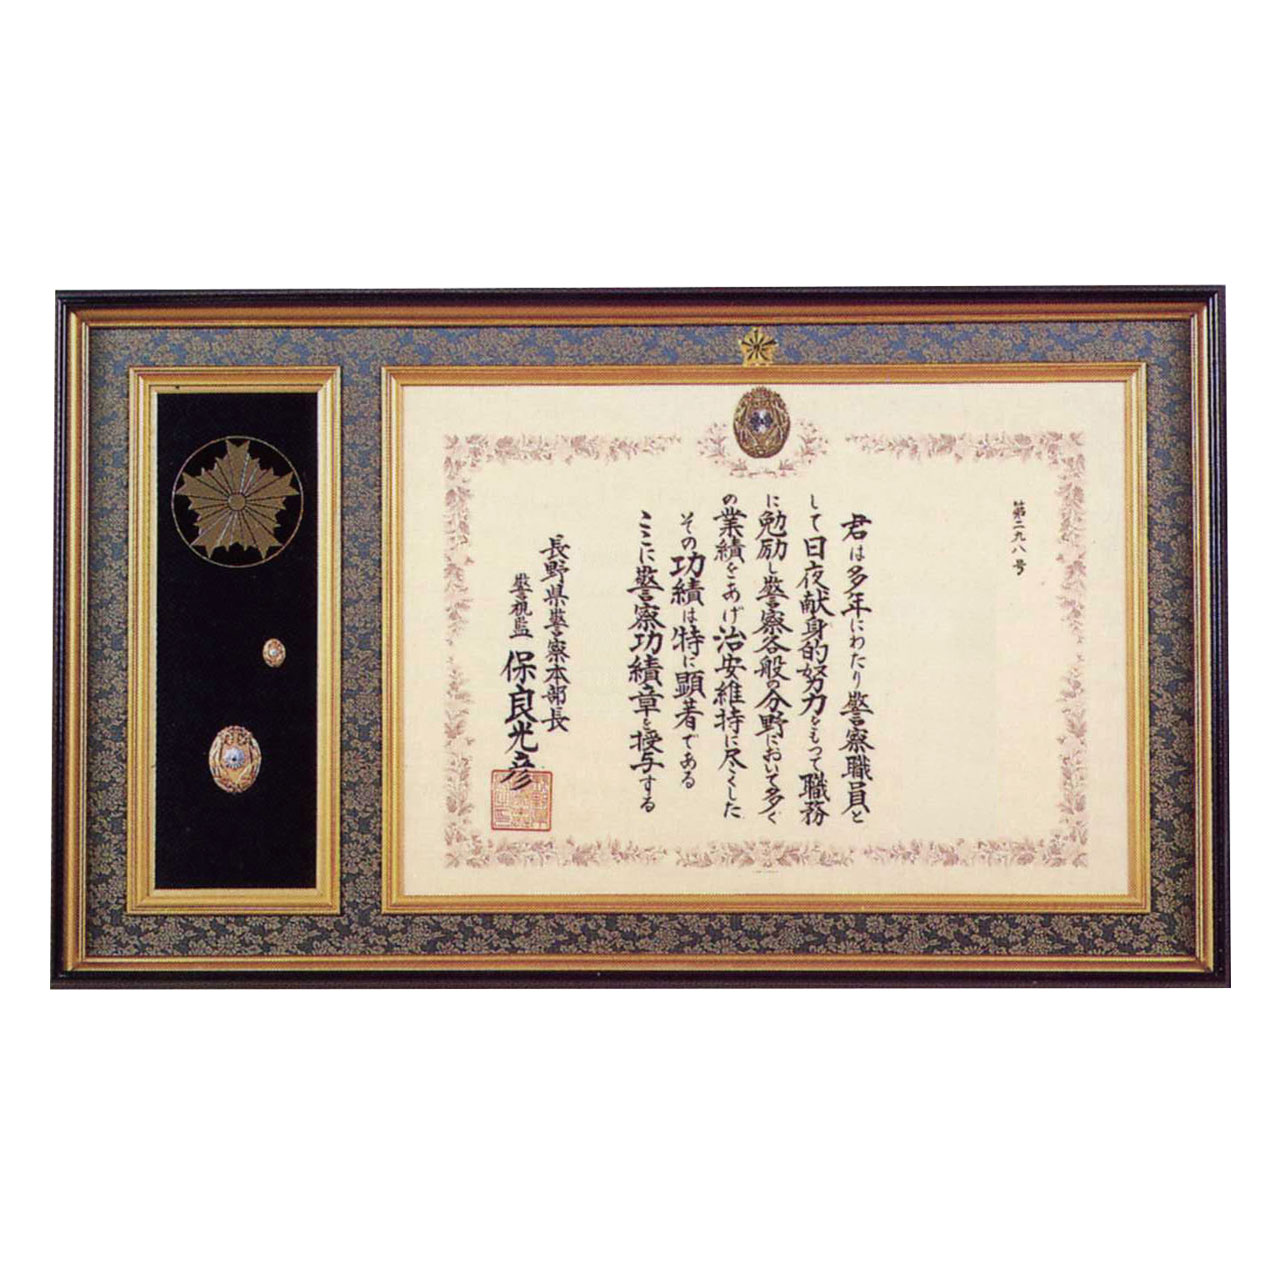 第二九八号
君は多年にわたり警察職員と
して日夜献身的努力をもつて職務
に勉励し警察各般の分野において多く
の業績をあげ治安維持に尽くした
その功績は特に顕著である
ここに警察功績章を授与する
長野県警察本部長
警視監 保良光彦